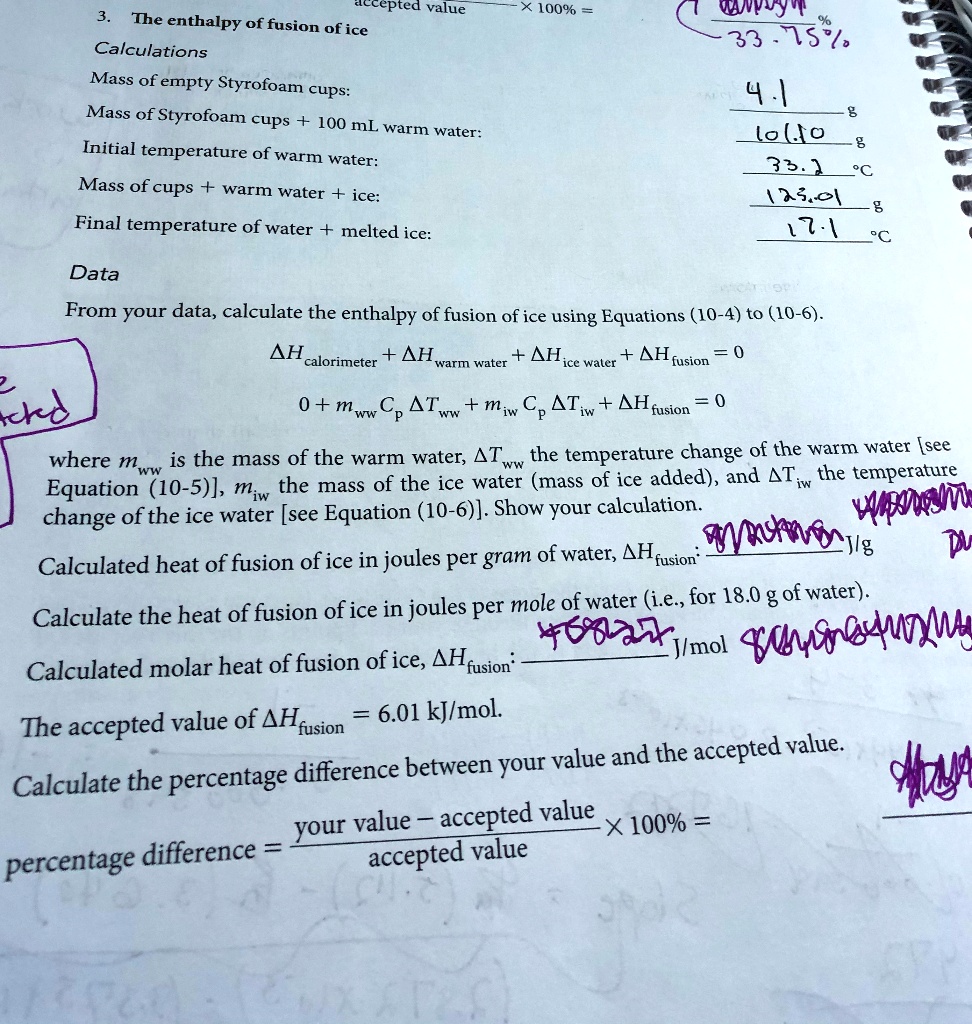 accepted value × 100% =
%
33.75%
3. The enthalpy of fusion of ice
Calculations
Mass of empty Styrofoam cups: 4.1 g
Mass of Styrofoam cups + 100 mL warm water: 101.10 g
Initial temperature of warm water: 33.2 °C
Mass of cups + warm water + ice: g
Final temperature of water + melted ice: 17.1 °C
Data
From your data, calculate the enthalpy of fusion of ice using Equations (10-4) to (10-6).
ΔH calorimeter + ΔH warm water + ΔH ice water + ΔH fusion = 0
0 + m ww C p ΔT ww + m iw C p ΔT iw + ΔH fusion = 0
where m ww is the mass of the warm water, ΔT ww the temperature change of the warm water [see
Equation (10-5)], m iw the mass of the ice water (mass of ice added), and ΔT iw the temperature
change of the ice water [see Equation (10-6)]. Show your calculation.
Calculated heat of fusion of ice in joules per gram of water, ΔH fusion: J/g
Calculate the heat of fusion of ice in joules per mole of water (i.e., for 18.0 g of water).
Calculated molar heat of fusion of ice, ΔH fusion: J/mol
The accepted value of ΔH fusion = 6.01 kJ/mol.
Calculate the percentage difference between your value and the accepted value.
percentage difference = your value − accepted value / accepted value × 100% =